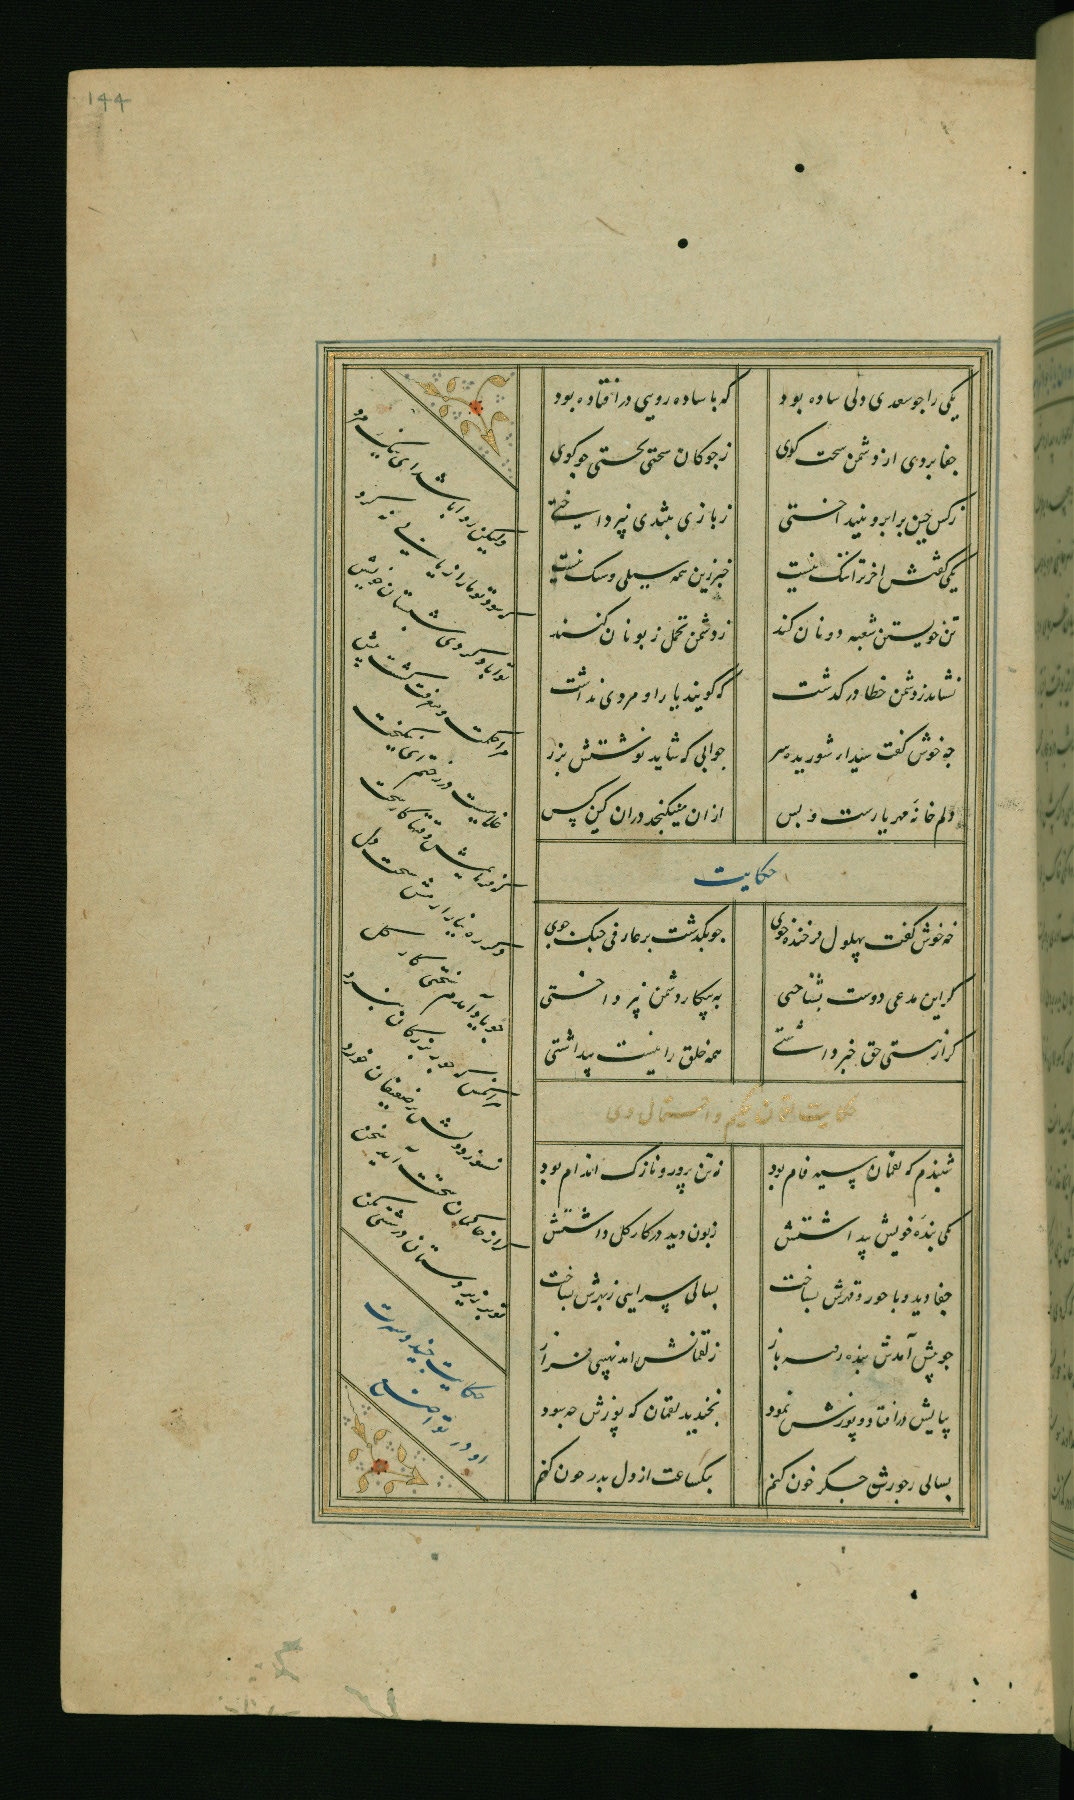 ۱۴۴
یکی را چو سعدی دلی ساده بود که با ساده رویی در افتاده بود
جفا بردی از دشمن سخت کوی ز چوکان سختی بخستی چو کوی
ز کس چین بر ابرو نینداختی ز بازی بتندی نپرداختی
یکی گفتش اخر ترا ننک نیست خبر زین همه سیلی و سنک نیست
تن خویستن شعبه دونان کند ز دشمن تحمل زبونان کنند
نشاید ز دشمن خطا در کذشت که کویند یارا و مردی نداشت
چه خوش گفت شیدای شوریده سر جوابی که شاید نوشتنش بزر
دلم خانه مهر یارست و بس از ان مینکنجد دران کین کس
حکایت
چه خوش کفت بهلول فرخنده خوی چو بکذشت بر عارفی جنک جوی
کر این مدعی دوست بشناختی به پیکار دشمن نپرداختی
کر از هستی حق خبر داشتی همه خلق را نیست پنداشتی
حکایت لقمان حکیم و
شنیدم که لقمان سیه فام بود نه تن پرور و نازک اندام بود
یکی بنده خویش پنداشتش زبون دید در کار کل داشتش
جفا دید و با جور و قهرش بساخت بسالی سرایی ز بهرش بساخت
چو پیش آمدش بنده رفته باز ز لقمانش امد نهیبی فراز
بپایش در افتاد و پوزش نمود بخندید لقمان که پوزش چه سود
بسالی ز جورش جکر خون کنم بیکساعت از دل بدر چون کنم
ولیکن روا باشد ای نیک مرد
که سود تو ما را زیانی نکرد
تو اباد کردی شبستان خویش
مرا حکمت و معرفت کشت بیش
غلامیست در رختم ای نیکبخت
که فرمایمش وقتها کار سخت
دکر ره نیازارمش سخت دل
چو یاد آیدم سختی کار کل
هر انکس که جور بزرکان نبرد
نسوزد دلش بر ضعیفان خورد
کر از حاکمان سخت آید سخن
تو بر زیردستان درشتی مکن
حکایت جنید و سیرت
او در تواضع